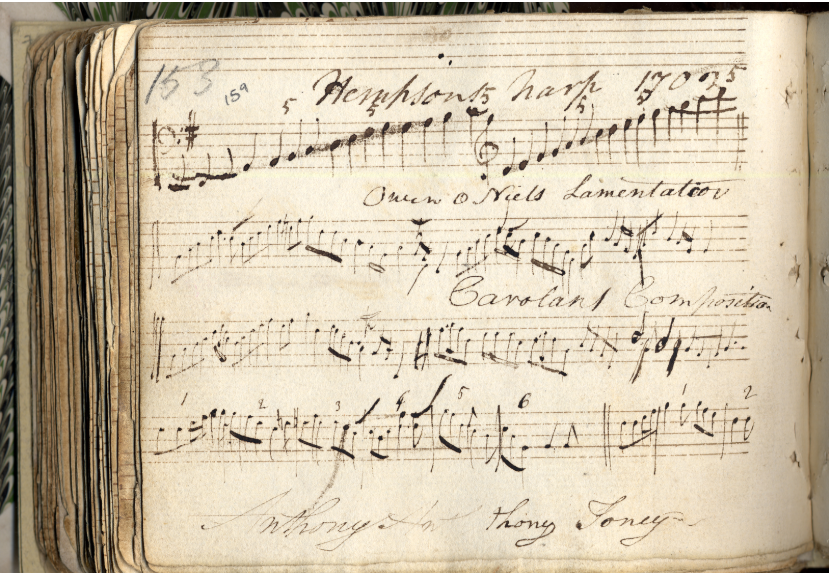 153 159 Hempsons harp 1702
5 5 5 5 5 5
Owen O Niels Lamentation
Carolans Composition
1 2 3 4 5 6 1 2
Anthony thony Toney